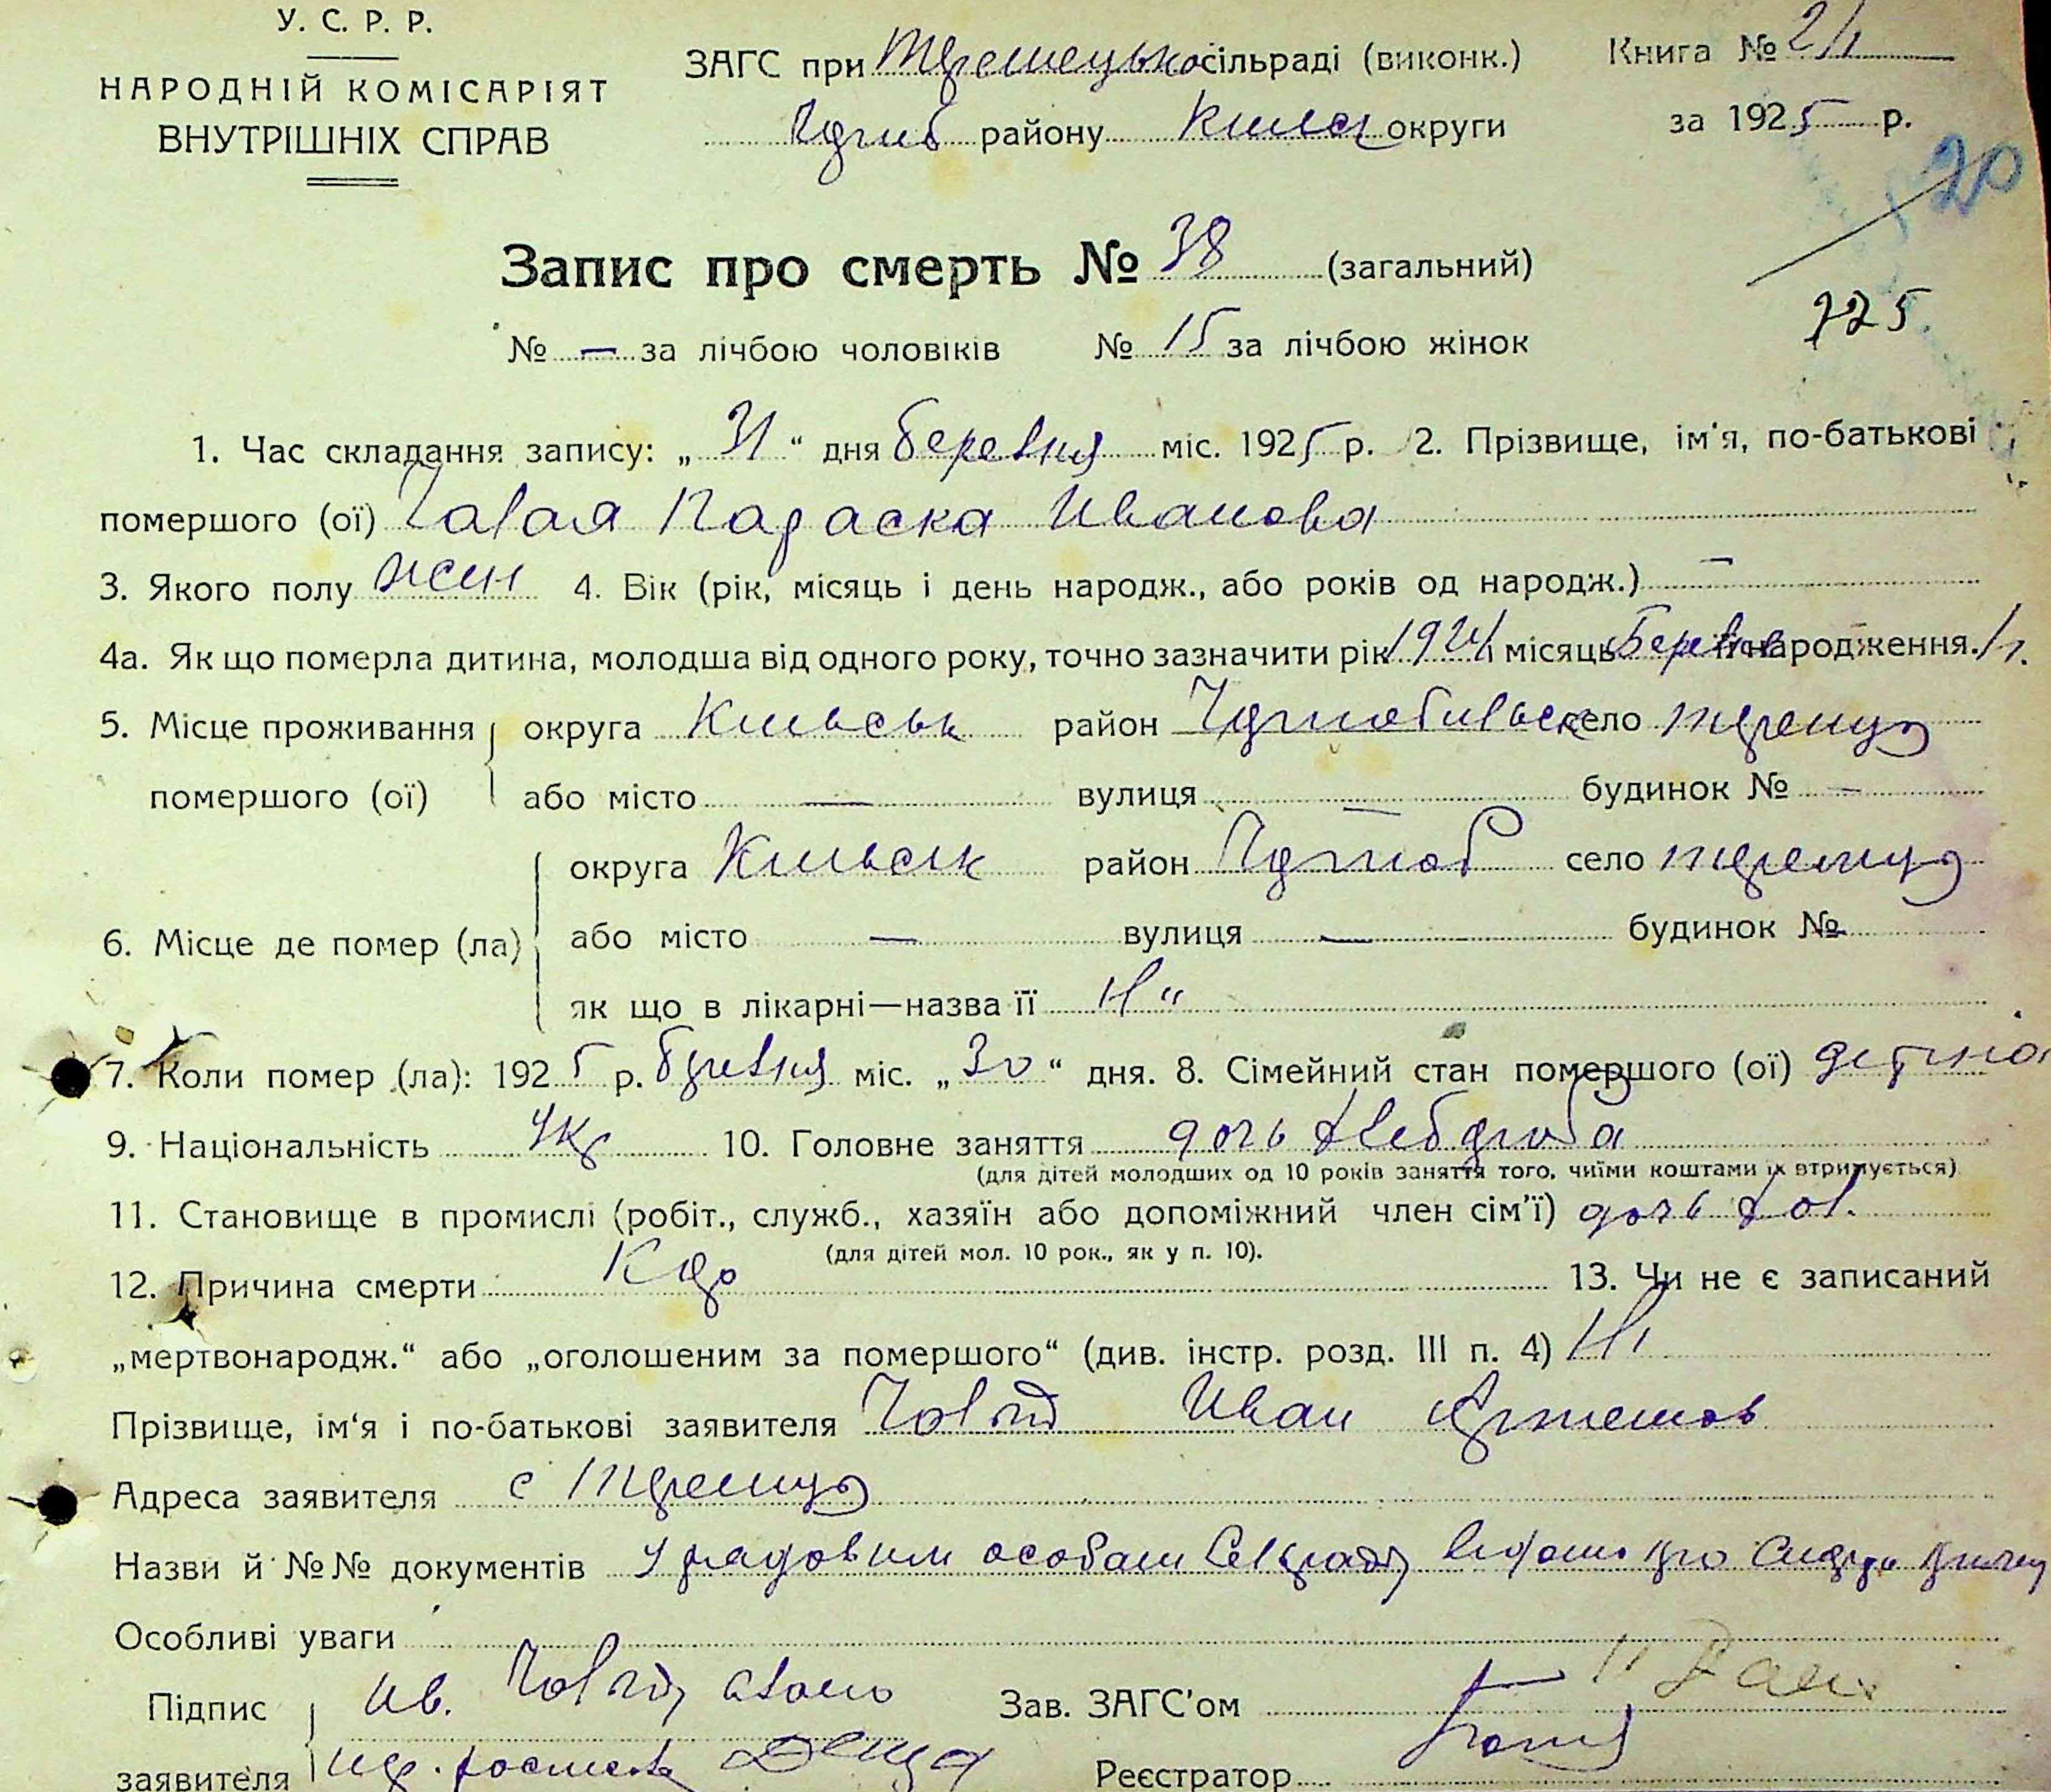 У. С. Р. Р.
НАРОДНІЙ КОМІСАРІЯТ
ВНУТРІШНІХ СПРАВ
ЗАГС при Теремецько сільраді (виконк.)
Чорноб району Киевс округи
Книга № 2/1
за 1925 р.
20
225
Запис про смерть № 38 (загальний)
№ — за лічбою чоловіків № 15 за лічбою жінок
1. Час складання запису: „31“ дня березня міс. 1925 р. 2. Прізвище, ім'я, по-батькові
помершого (ої) Параска Иванова
3. Якого полу жен 4. Вік (рік, місяць і день народж., або років од народж.) —
4а. Як що померла дитина, молодша від одного року, точно зазначити рік 1924 і місяць Березн її народження. 1 ч.
5. Місце проживання помершого (ої) округа Киевськ район Чорнобильськ село теремці
або місто — вулиця — будинок № —
6. Місце де помер (ла) округа Киевськ район Чорноб село теремці
або місто — вулиця — будинок №
як що в лікарні—назва її Н“
7. Коли помер (ла): 1925 р. березня міс. „30“ дня. 8. Сімейний стан помершого (ої) детина
9. Національність Укр 10. Головне заняття дочь хлебороба
(для дітей молодших од 10 років заняття того, чиїми коштами їх втримується)
11. Становище в промислі (робіт., служб., хазяїн або допоміжний член сім'ї) дочь
(для дітей мол. 10 рок., як у п. 10).
12. Причина смерти Кор 13. Чи не є записаний
„мертвонародж.“ або „оголошеним за помершого“ (див. інстр. розд. III п. 4) Ні
Прізвище, ім'я і по-батькові заявителя Иван Артемов
Адреса заявителя с Теремці
Назви й №№ документів Урядовим особам Сельради відомо про
Особливі уваги
Підпис заявителя Ив.
Зав. ЗАГС'ом
Реєстратор